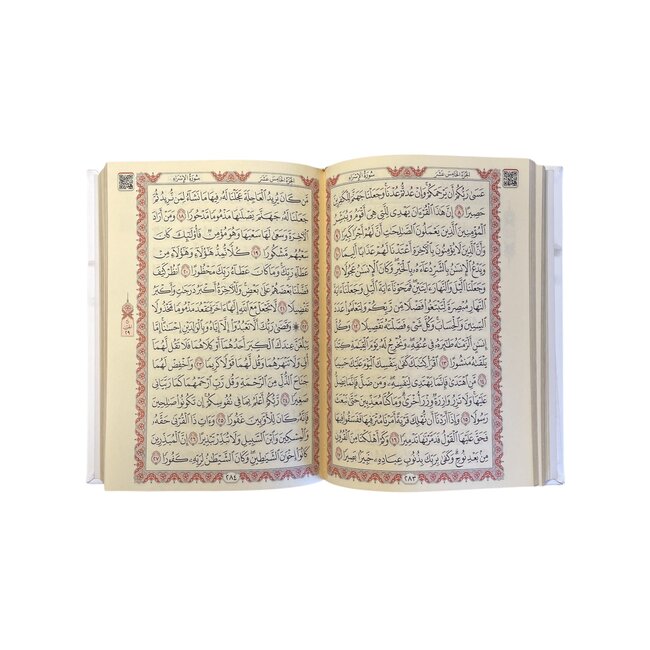 سُورَةُ الإِسْرَاءِ الجُزْءُ الخَامِسَ عَشَرَ
عَسَىٰ رَبُّكُمْ أَن يَرْحَمَكُمْ وَإِنْ عُدتُّمْ عُدْنَا وَجَعَلْنَا جَهَنَّمَ لِلْكَٰفِرِينَ
حَصِيرًا ٨ إِنَّ هَٰذَا ٱلْقُرْءَانَ يَهْدِى لِلَّتِى هِىَ أَقْوَمُ وَيُبَشِّرُ
ٱلْمُؤْمِنِينَ ٱلَّذِينَ يَعْمَلُونَ ٱلصَّٰلِحَٰتِ أَنَّ لَهُمْ أَجْرًا كَبِيرًا ٩
وَأَنَّ ٱلَّذِينَ لَا يُؤْمِنُونَ بِٱلْءَاخِرَةِ أَعْتَدْنَا لَهُمْ عَذَابًا أَلِيمًا ١٠
وَيَدْعُ ٱلْإِنسَٰنُ بِٱلشَّرِّ دُعَآءَهُۥ بِٱلْخَيْرِ وَكَانَ ٱلْإِنسَٰنُ عَجُولًا ١١
وَجَعَلْنَا ٱلَّيْلَ وَٱلنَّهَارَ ءَايَتَيْنِ فَمَحَوْنَآ ءَايَةَ ٱلَّيْلِ وَجَعَلْنَآ ءَايَةَ
ٱلنَّهَارِ مُبْصِرَةً لِّتَبْتَغُوا۟ فَضْلًا مِّن رَّبِّكُمْ وَلِتَعْلَمُوا۟ عَدَدَ
ٱلسِّنِينَ وَٱلْحِسَابَ وَكُلَّ شَىْءٍ فَصَّلْنَٰهُ تَفْصِيلًا ١٢ وَكُلَّ
إِنسَٰنٍ أَلْزَمْنَٰهُ طَٰٓئِرَهُۥ فِى عُنُقِهِۦ وَنُخْرِجُ لَهُۥ يَوْمَ ٱلْقِيَٰمَةِ كِتَٰبًا
يَلْقَىٰهُ مَنشُورًا ١٣ ٱقْرَأْ كِتَٰبَكَ كَفَىٰ بِنَفْسِكَ ٱلْيَوْمَ عَلَيْكَ حَسِيبًا
١٤ مَّنِ ٱهْتَدَىٰ فَإِنَّمَا يَهْتَدِى لِنَفْسِهِۦ وَمَن ضَلَّ فَإِنَّمَا يَضِلُّ
عَلَيْهَا وَلَا تَزِرُ وَازِرَةٌ وِزْرَ أُخْرَىٰ وَمَا كُنَّا مُعَذِّبِينَ حَتَّىٰ نَبْعَثَ
رَسُولًا ١٥ وَإِذَآ أَرَدْنَآ أَن نُّهْلِكَ قَرْيَةً أَمَرْنَا مُتْرَفِيهَا فَفَسَقُوا۟ فِيهَا
فَحَقَّ عَلَيْهَا ٱلْقَوْلُ فَدَمَّرْنَٰهَا تَدْمِيرًا ١٦ وَكَمْ أَهْلَكْنَا مِنَ ٱلْقُرُونِ
مِنۢ بَعْدِ نُوحٍ وَكَفَىٰ بِرَبِّكَ بِذُنُوبِ عِبَادِهِۦ خَبِيرًۢا بَصِيرًا ١٧
٢٨٣
الجُزْءُ الخَامِسَ عَشَرَ سُورَةُ الإِسْرَاءِ
مَّن كَانَ يُرِيدُ ٱلْعَاجِلَةَ عَجَّلْنَا لَهُۥ فِيهَا مَا نَشَآءُ لِمَن نُّرِيدُ ثُمَّ
جَعَلْنَا لَهُۥ جَهَنَّمَ يَصْلَىٰهَا مَذْمُومًا مَّدْحُورًا ١٨ وَمَنْ أَرَادَ
ٱلْءَاخِرَةَ وَسَعَىٰ لَهَا سَعْيَهَا وَهُوَ مُؤْمِنٌ فَأُو۟لَٰٓئِكَ كَانَ
سَعْيُهُم مَّشْكُورًا ١٩ كُلًّا نُّمِدُّ هَٰٓؤُلَآءِ وَهَٰٓؤُلَآءِ مِنْ
عَطَآءِ رَبِّكَ وَمَا كَانَ عَطَآءُ رَبِّكَ مَحْظُورًا ٢٠ ٱنظُرْ كَيْفَ
فَضَّلْنَا بَعْضَهُمْ عَلَىٰ بَعْضٍ وَلَلْءَاخِرَةُ أَكْبَرُ دَرَجَٰتٍ وَأَكْبَرُ
تَفْضِيلًا ٢١ لَّا تَجْعَلْ مَعَ ٱللَّهِ إِلَٰهًا ءَاخَرَ فَتَقْعُدَ مَذْمُومًا مَّخْذُولًا
٢٢ ۞ وَقَضَىٰ رَبُّكَ أَلَّا تَعْبُدُوٓا۟ إِلَّآ إِيَّاهُ وَبِٱلْوَٰلِدَيْنِ إِحْسَٰنًا إِمَّا
يَبْلُغَنَّ عِندَكَ ٱلْكِبَرَ أَحَدُهُمَآ أَوْ كِلَاهُمَا فَلَا تَقُل لَّهُمَآ
أُفٍّ وَلَا تَنْهَرْهُمَا وَقُل لَّهُمَا قَوْلًا كَرِيمًا ٢٣ وَٱخْفِضْ لَهُمَا
جَنَاحَ ٱلذُّلِّ مِنَ ٱلرَّحْمَةِ وَقُل رَّبِّ ٱرْحَمْهُمَا كَمَا رَبَّيَانِى
صَغِيرًا ٢٤ رَّبُّكُمْ أَعْلَمُ بِمَا فِى نُفُوسِكُمْ إِن تَكُونُوا۟ صَٰلِحِينَ
فَإِنَّهُۥ كَانَ لِلْأَوَّٰبِينَ غَفُورًا ٢٥ وَءَاتِ ذَا ٱلْقُرْبَىٰ حَقَّهُۥ
وَٱلْمِسْكِينَ وَٱبْنَ ٱلسَّبِيلِ وَلَا تُبَذِّرْ تَبْذِيرًا ٢٦ إِنَّ ٱلْمُبَذِّرِينَ
كَانُوٓا۟ إِخْوَٰنَ ٱلشَّيَٰطِينِ وَكَانَ ٱلشَّيْطَٰنُ لِرَبِّهِۦ كَفُورًا ٢٧
٢٨٤